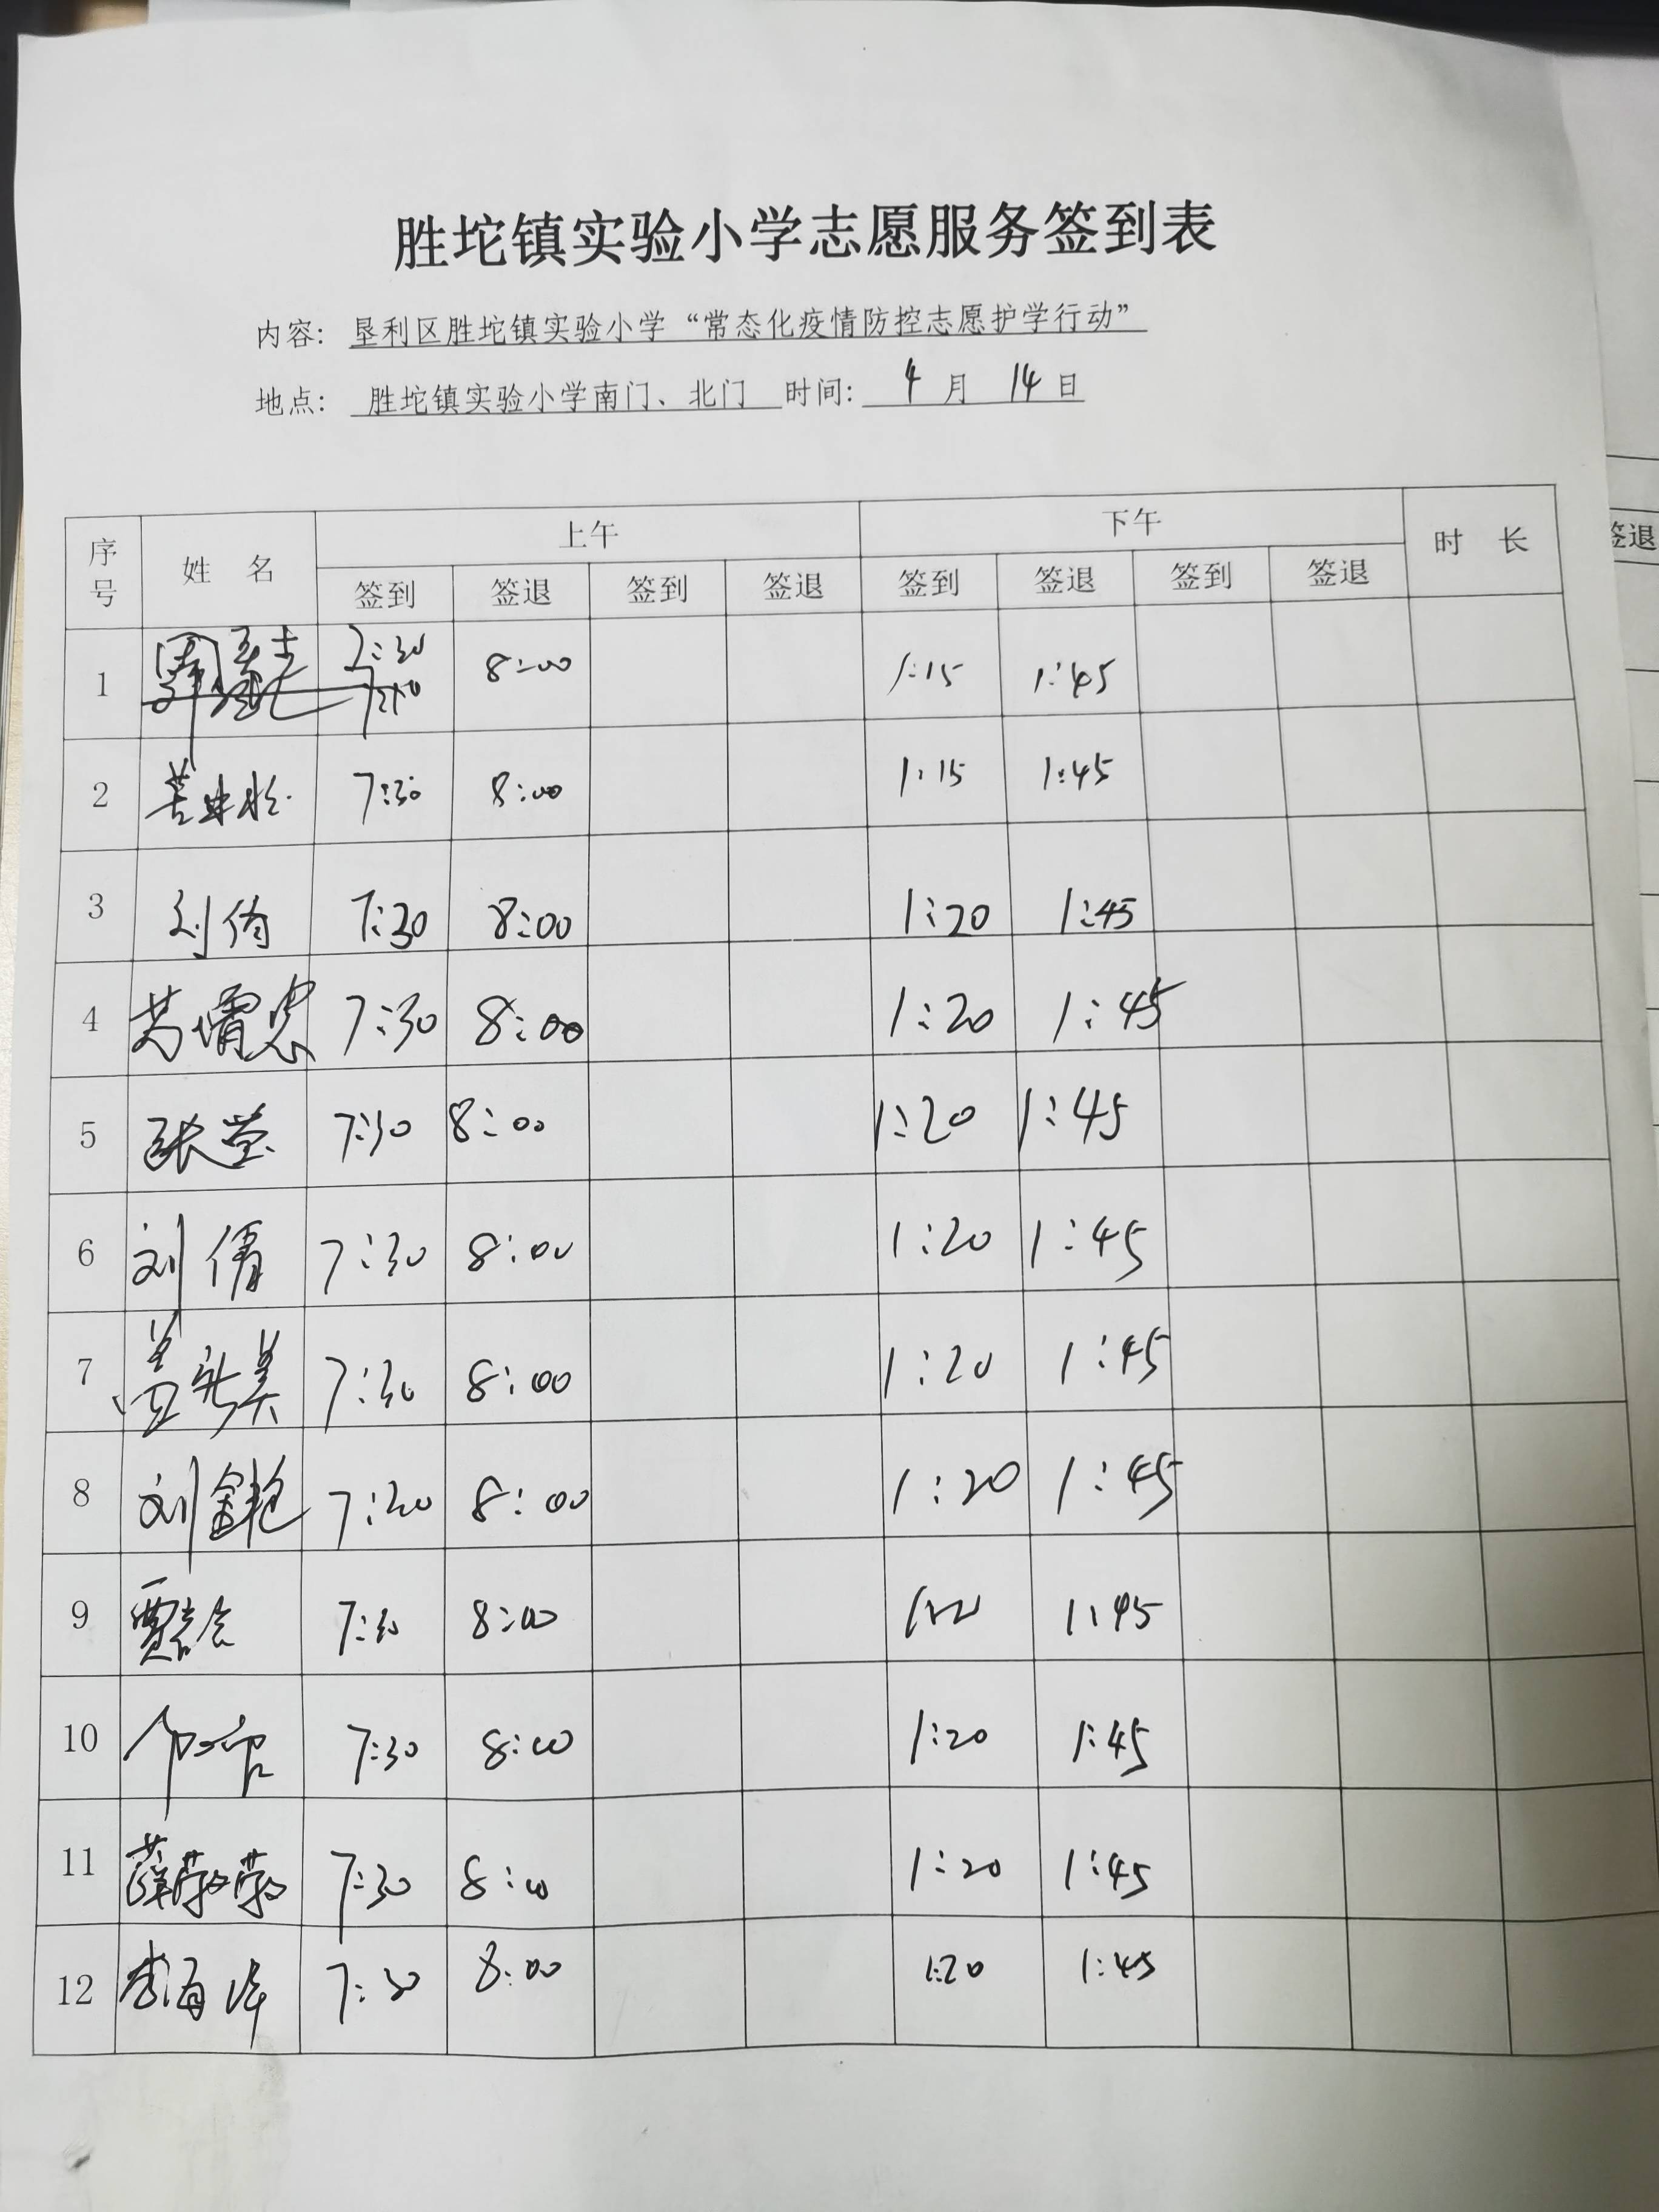 胜坨镇实验小学志愿服务签到表
内容: 垦利区胜坨镇实验小学“常态化疫情防控志愿护学行动”
地点: 胜坨镇实验小学南门、北门 时间: 4 月 14 日
序号 姓 名 上午 下午 时 长
签到 签退 签到 签退 签到 签退 签到 签退
签退
1 7:30 8:00 1:15 1:45
2 7:30 8:00 1:15 1:45
3 刘倩 7:30 8:00 1:20 1:45
4 7:30 8:00 1:20 1:45
5 张莹 7:30 8:00 1:20 1:45
6 刘倩 7:30 8:00 1:20 1:45
7 7:30 8:00 1:20 1:45
8 刘金艳 7:30 8:00 1:20 1:45
9 7:30 8:00 1:45
10 7:30 8:00 1:20 1:45
11 薛荣荣 7:30 8:00 1:20 1:45
12 李海洋 7:30 8:00 1:20 1:45